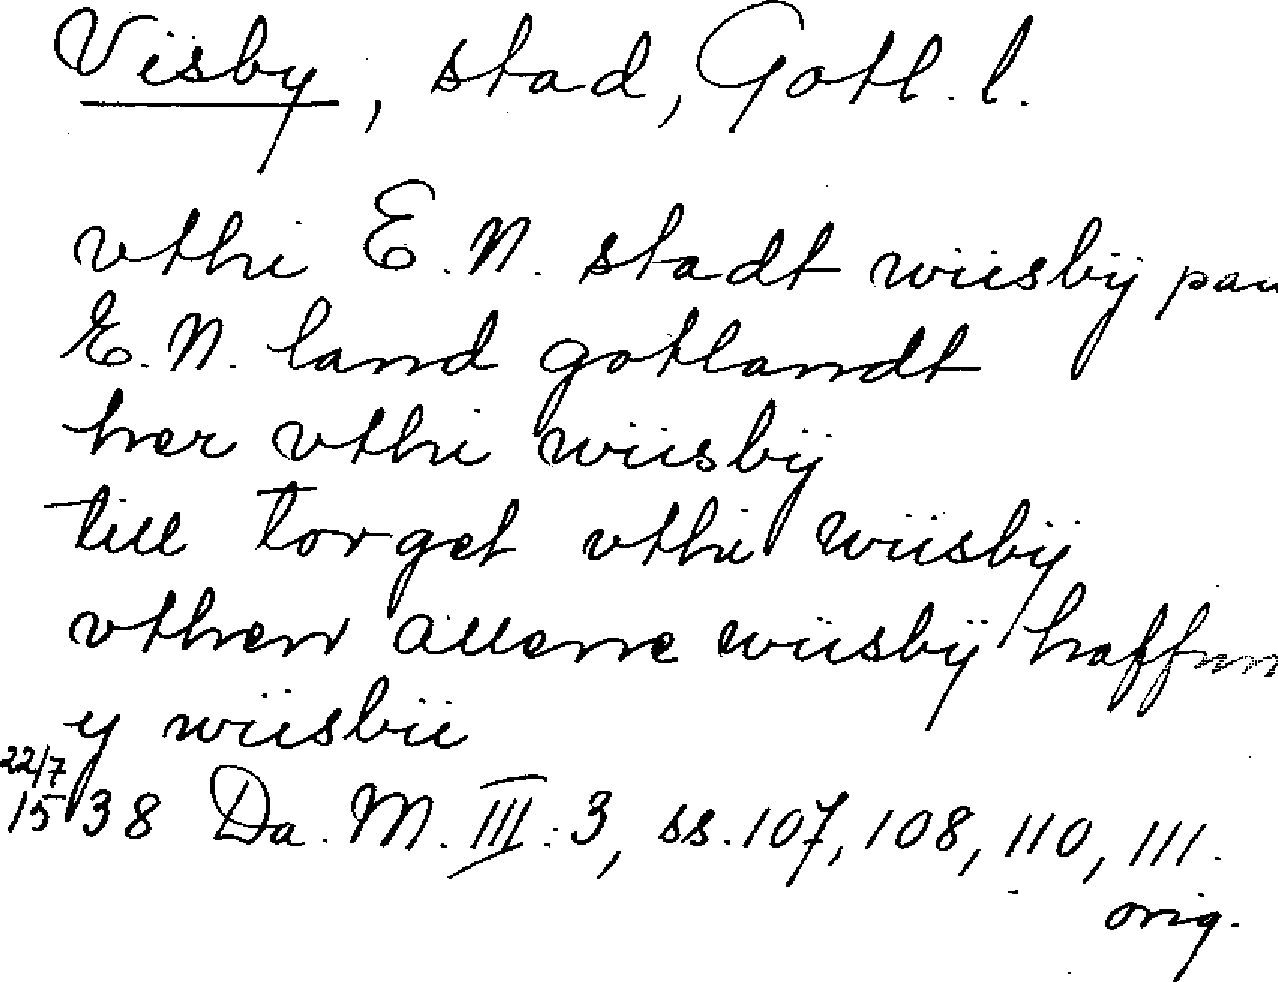 Visby, stad, Gotl. l.
vthi E.N. stadt wiisbÿ paa
E.N. land gotlandt
her vthi wiisbÿ
till torget vthi wiisbÿ
vthen allene wiisbÿ haffnn
y wiisbii
22/7
1538 Da. M. III: 3, ss. 107, 108, 110, 111.
orig.